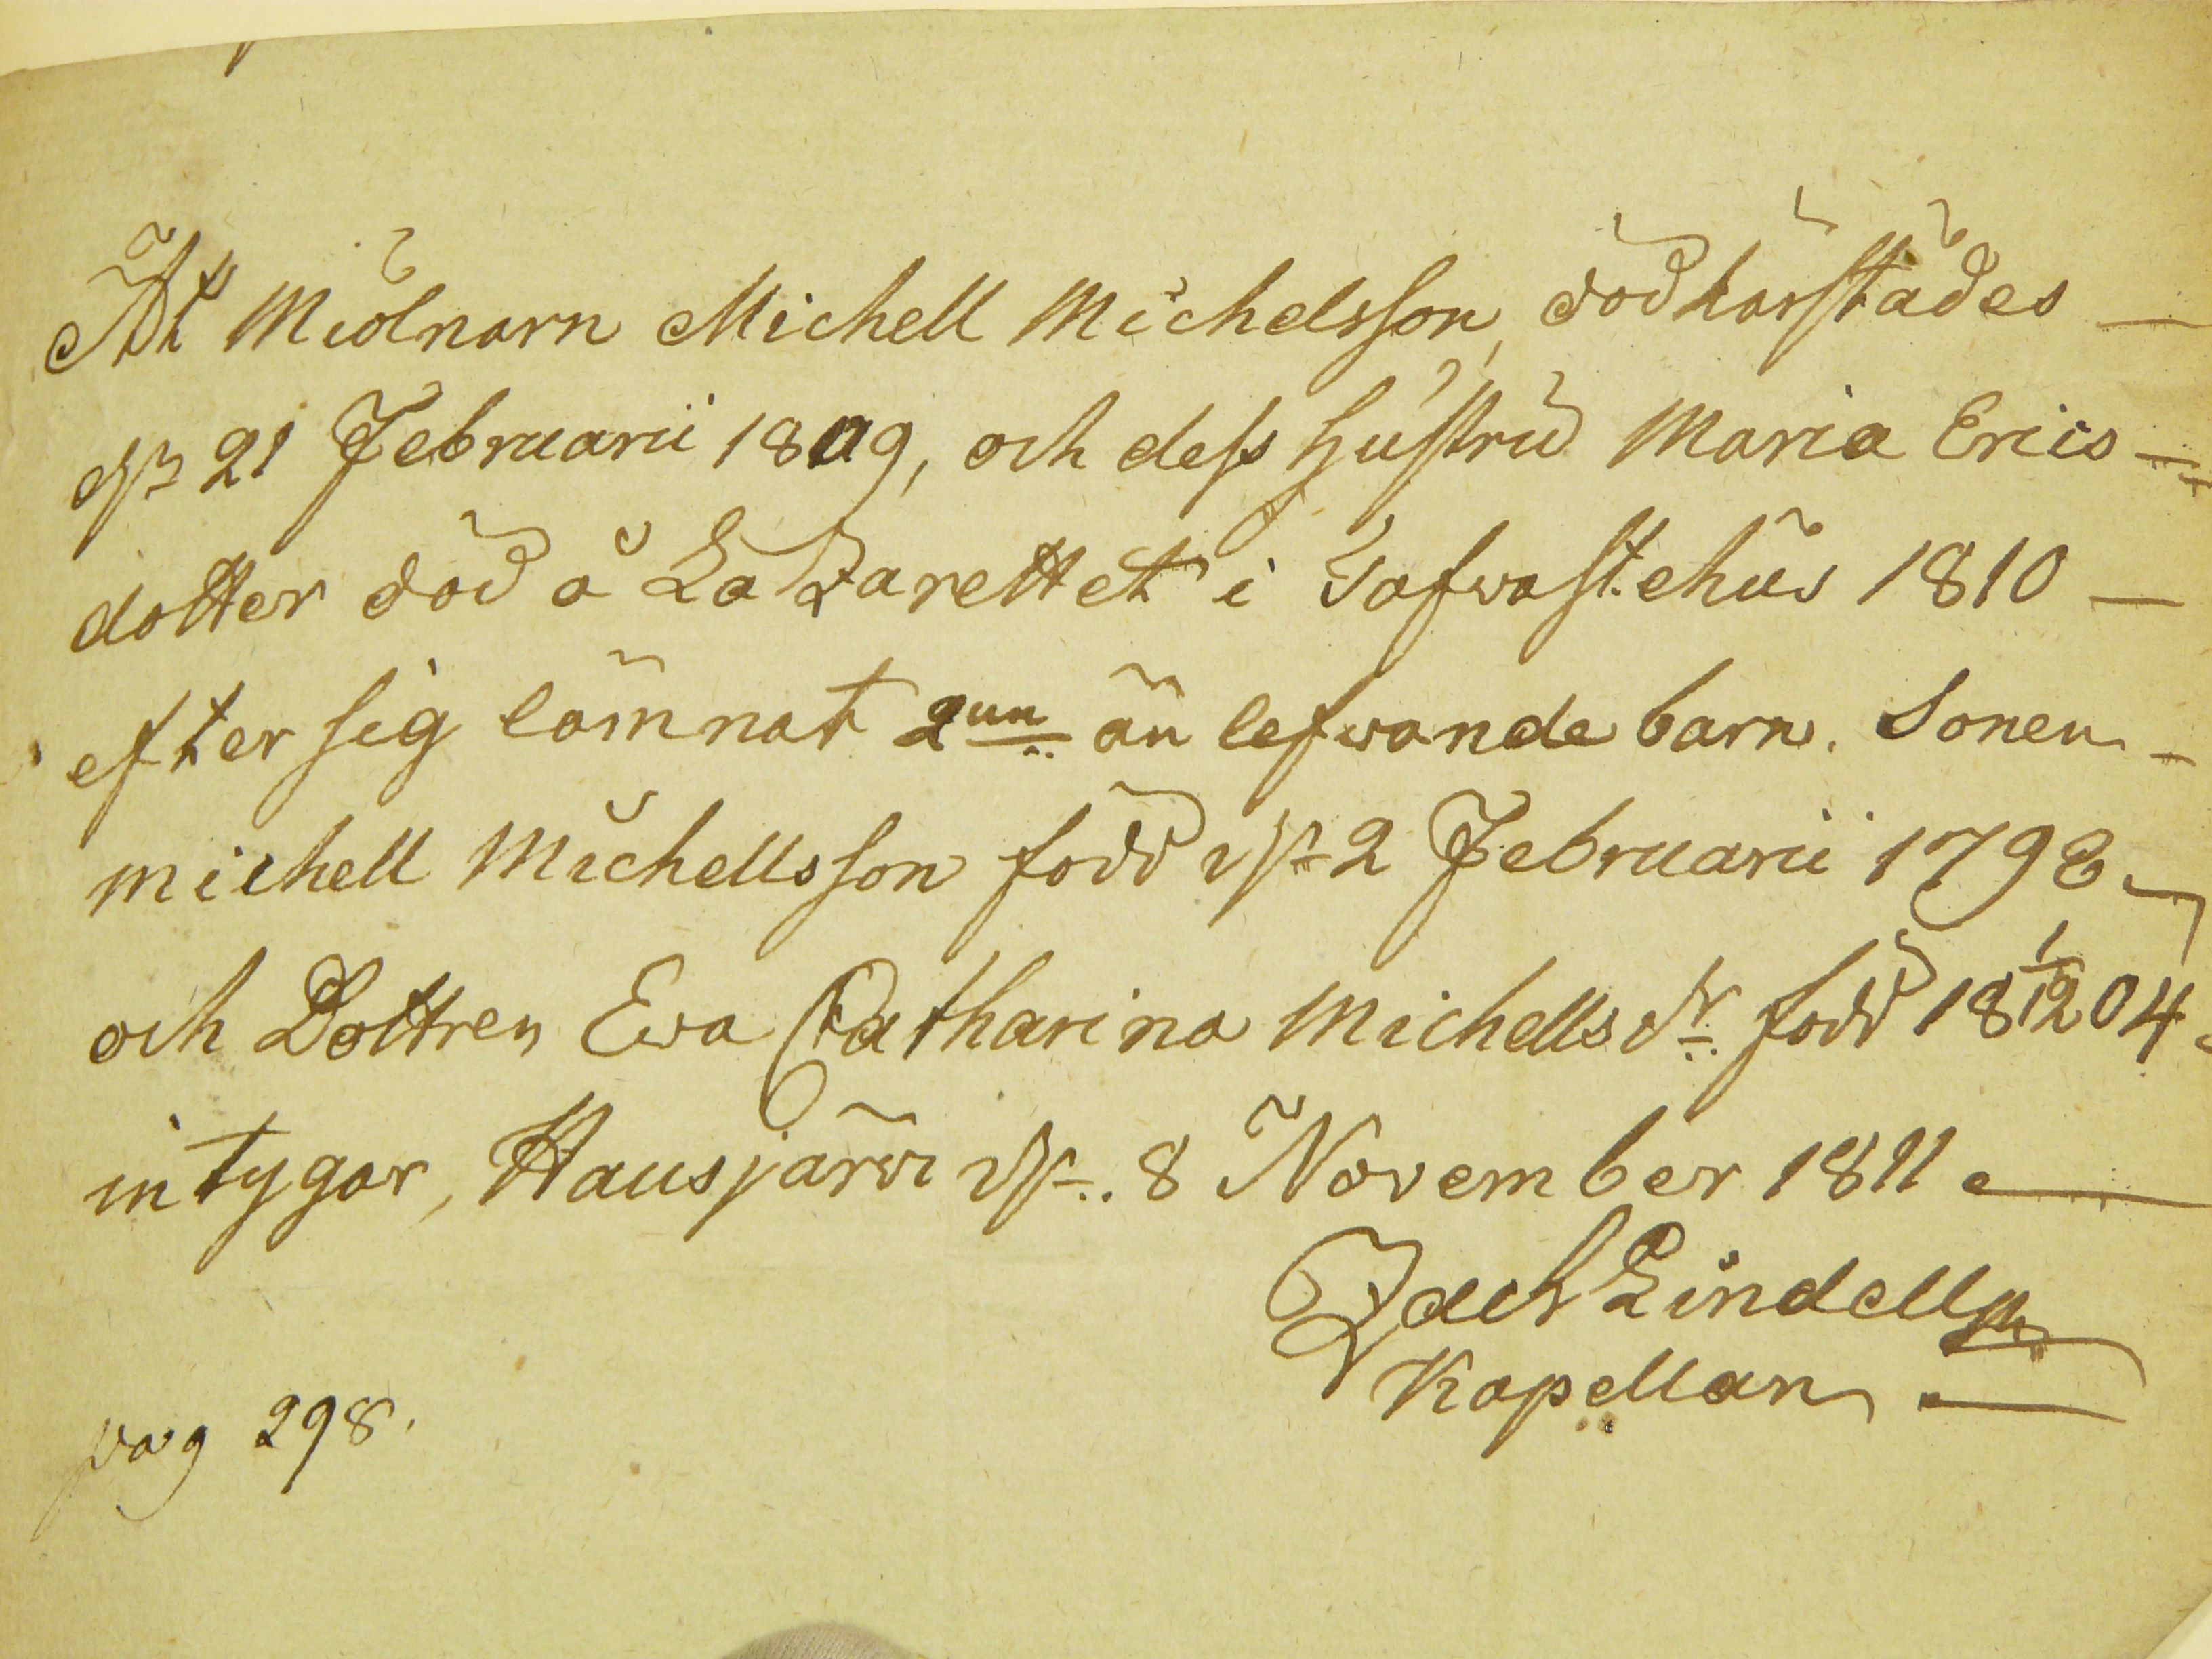 At Miölnarn Michell Michelsson, död härstädes —
dn 21 Februarii 1809, och dess Hustru Maria Erics-
dotter död å Lazarettet i Tafwastehus 1810 —
efter sig lämnat 2nn än lefwande barn. Sonen —
Michell Michellsson född dn 2 Februarii 1798
och Dottren Ewa Catharina Michellsdr. född 18 1/12 04
intygar, Hausjärwi dn. 8 November 1811
Zach Lindell
Kapellan
pag 298.